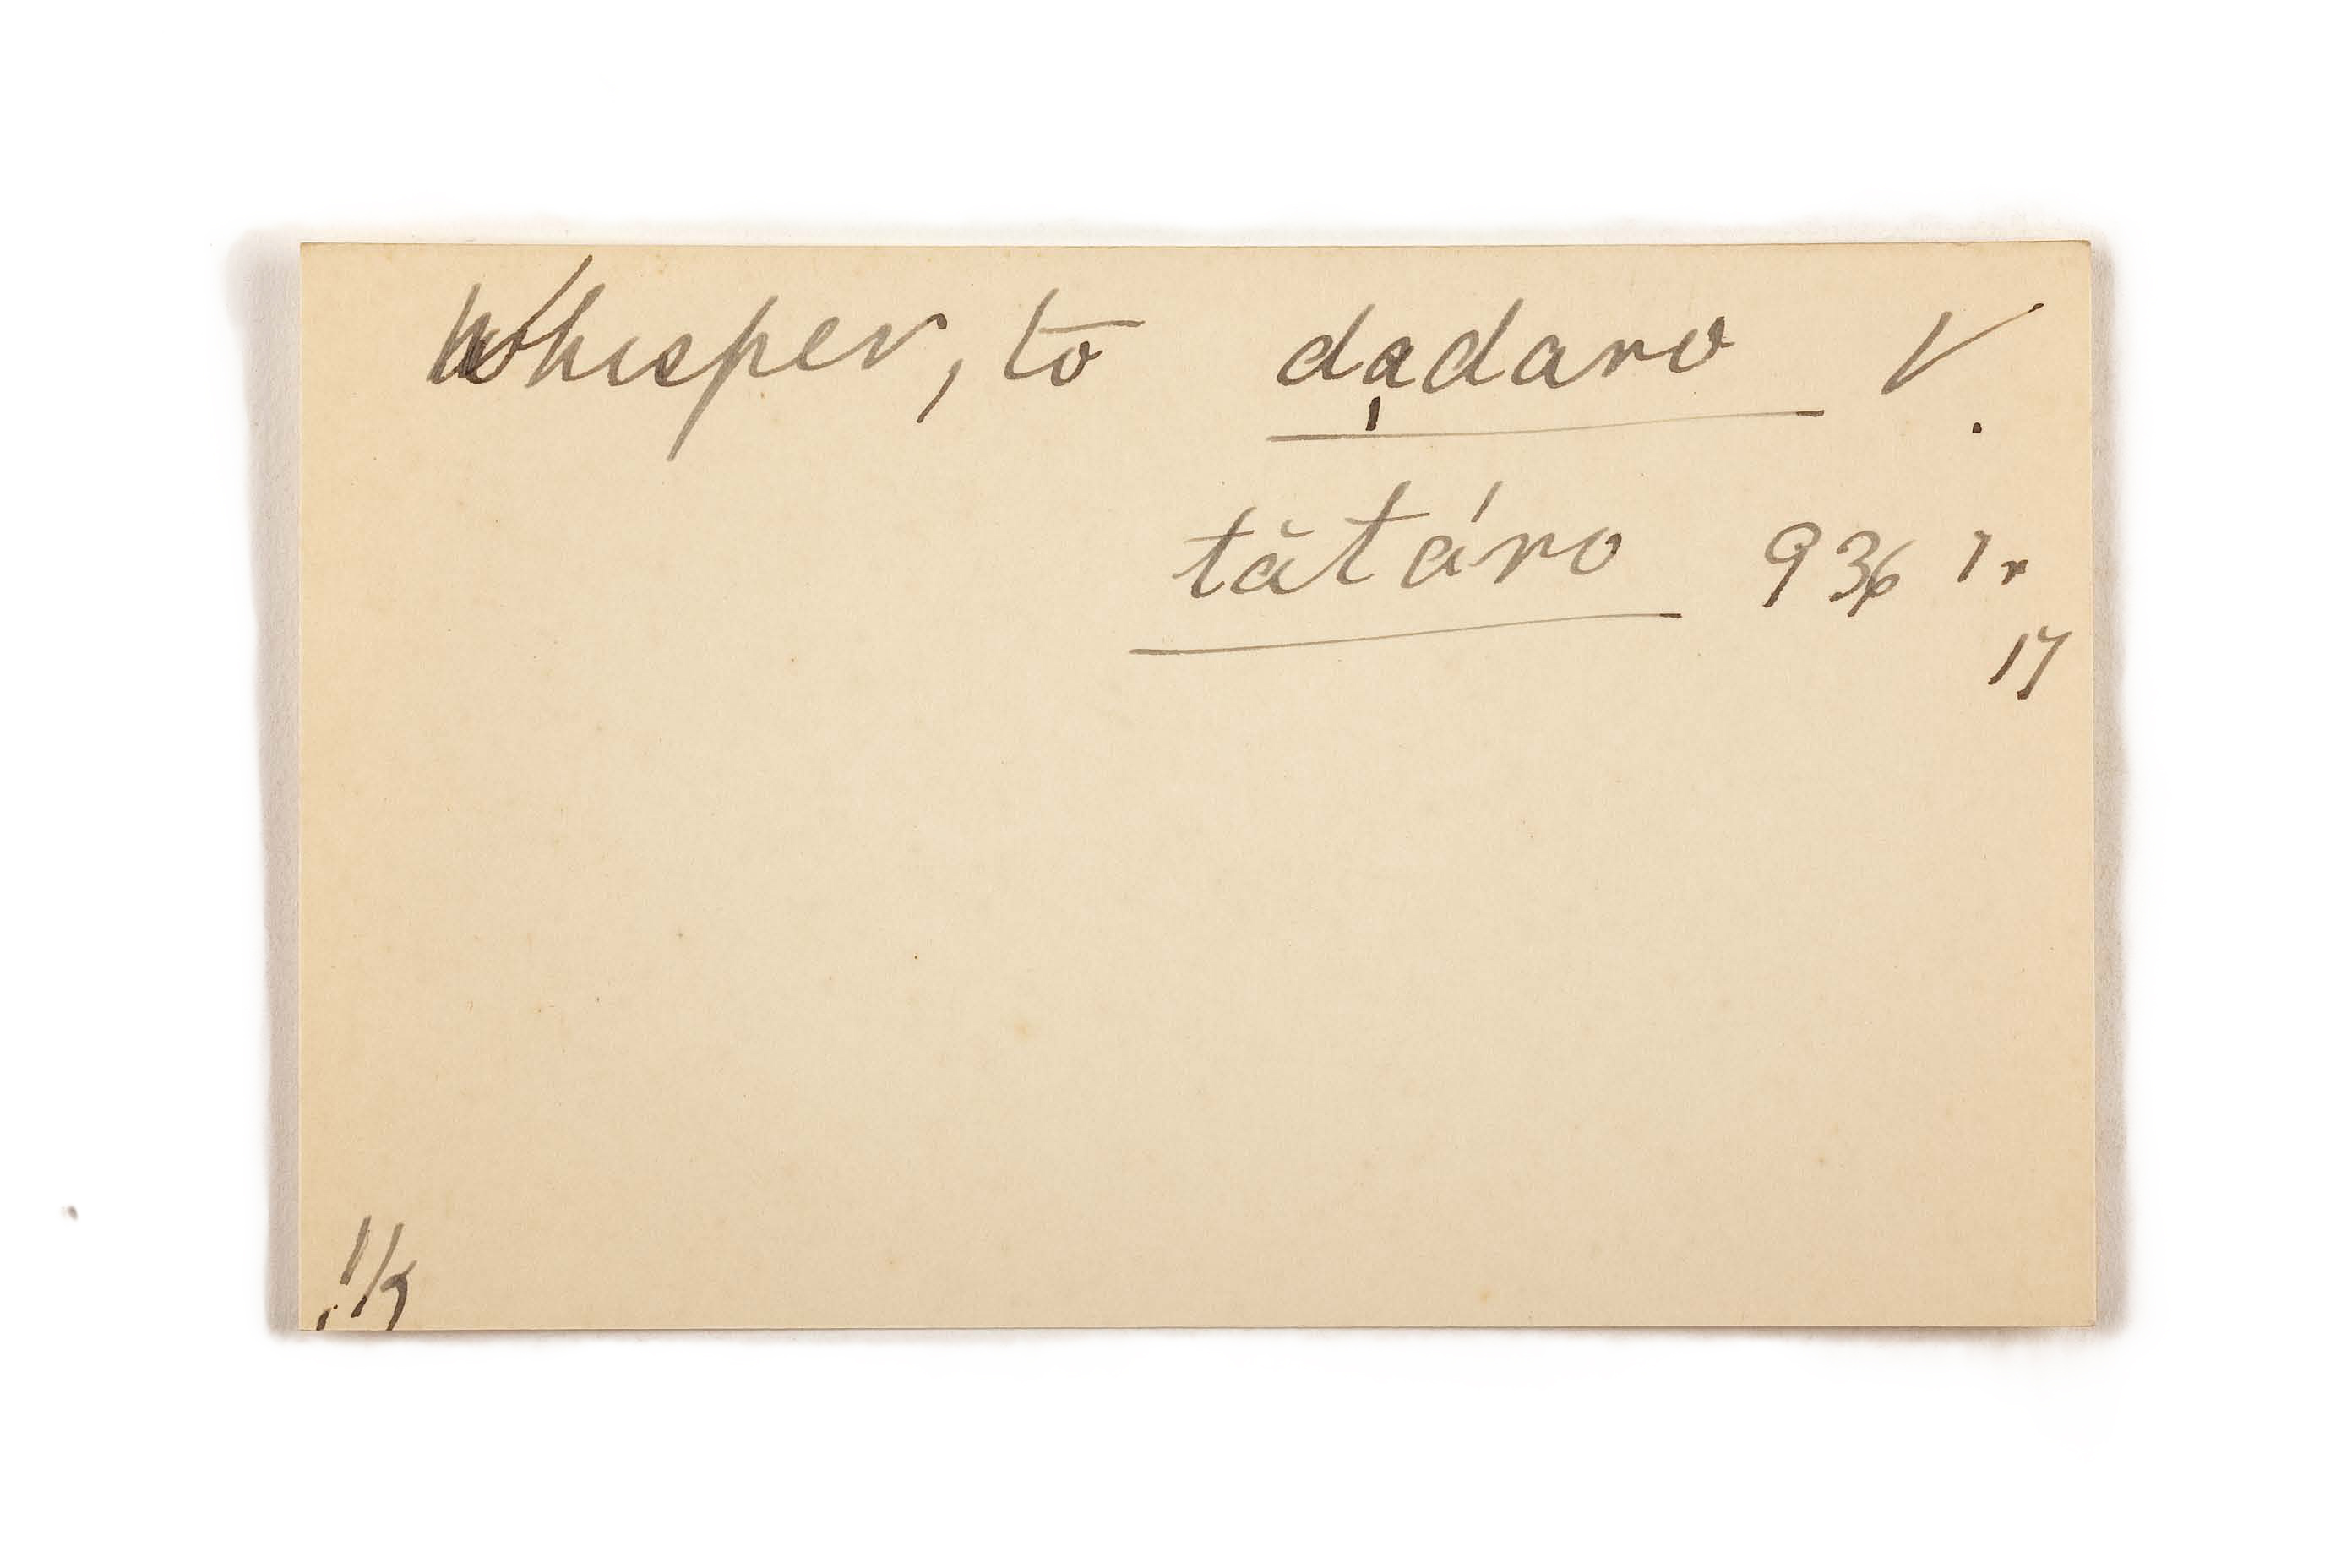 Whisper, to dạdaro V.
tătáro 936 Ir
17